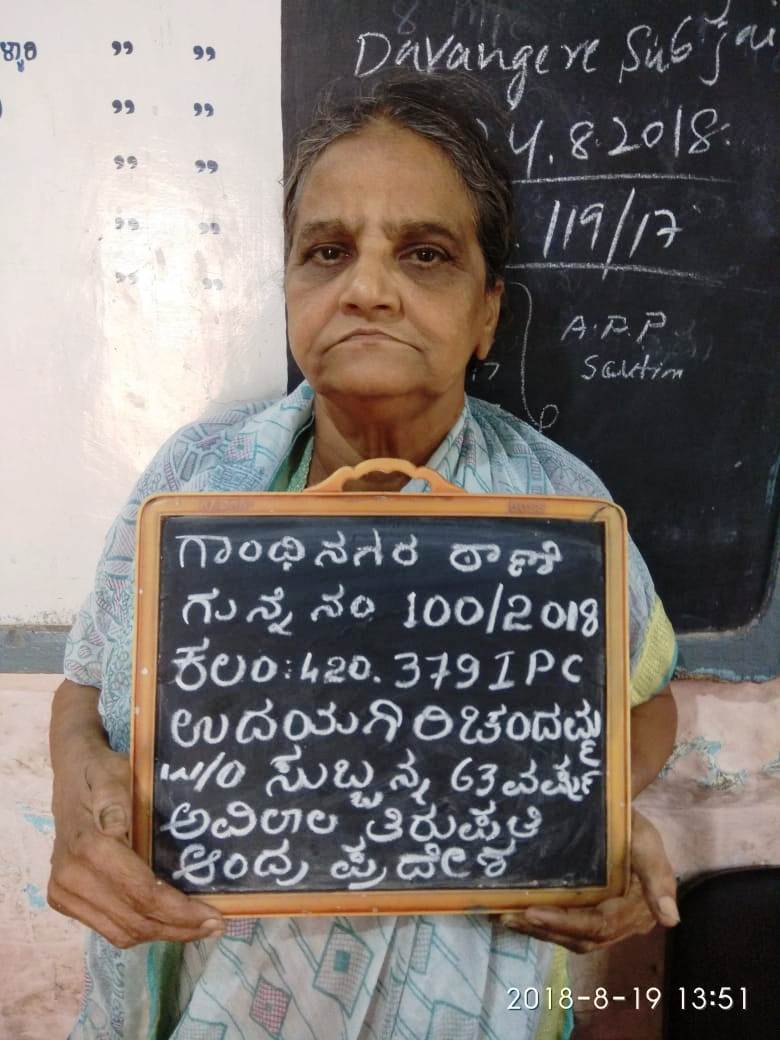 ಳ್ಳಾರಿ ” ”
” ”
” ”
” ”
” ”
Davangere Sub jai
4.8.2018
119/17
A.P.P
ಗಾಂಧಿನಗರ ಠಾಣೆ
ಗುನ್ನೆ ನಂ 100/2018
ಕಲಂ:420.379 IPC
ಉದಯಗಿರಿಚಂದಮ್ಮ
W/O ಸುಬ್ಬನ್ನ 63 ವರ್ಷ
ಅವಿಲಾಲ ತಿರುಪತಿ
ಆಂದ್ರ ಪ್ರದೇಶ
2018-8-19 13:51